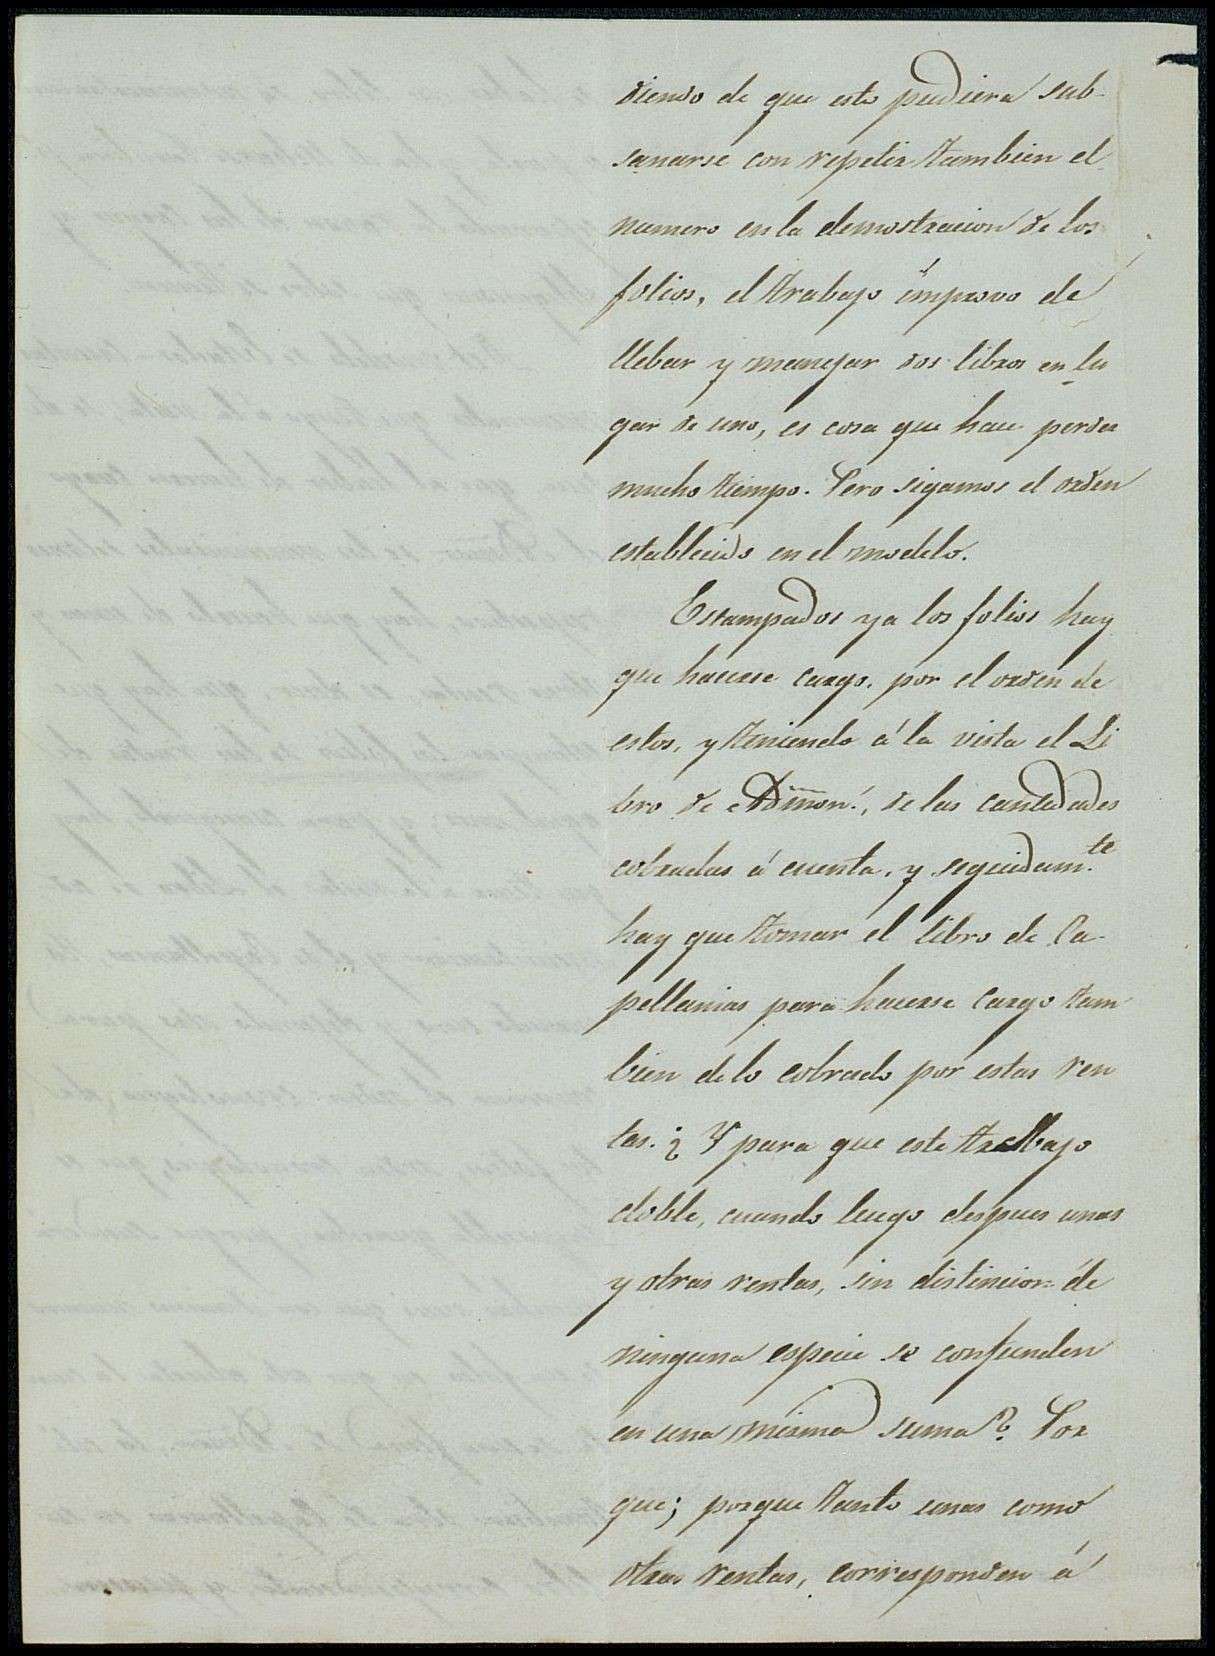 diendo de que esto pudiera sub-
sanarse con repetir tambien el
numero en la demostracion de los
folios, el trabajo improvo de
llebar y manejar dos libros en lu
gar de uno, es cosa que hace perder
mucho tiempo. Pero sigamos el orden
establecido en el modelo.
Estampados ya los folios hay
que hacerse cargo, por el orden de
estos, y teniendo á la vista el Li
bro de Admon., de las cantidades
cobradas á cuenta, y seguidam.te
hay que tomar el libro de Ca-
pellanias para hacerse cargo tam
bien de lo cobrado por estas ren
tas. ¿Y para que este trabajo
doble, cuando luego despues unas
y otras rentas, sin distincion de
ninguna especie se confunden
en una misma suma? Por
que; porque tanto unas como
otras rentas, corresponden á